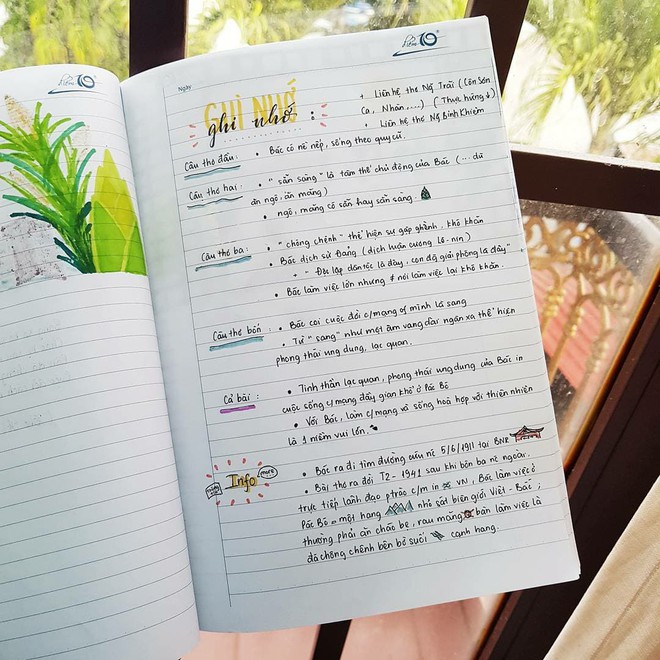 điểm 10
điểm 10
Ngày
GHI NHỚ
ghi nhớ :
+ Liên hệ thơ Ng̃ Trãi (Côn Sơn
Ca, Nhàn,...) (Thực hứng ↓)
• Liên hệ thơ Ng̃ Bỉnh Khiêm
Câu thơ đầu : • Bác có nề nếp, sống theo quy củ.
Câu thơ hai : • "sẵn sàng" là tâm thế chủ động của Bác (... dù
ăn ngô, ăn măng)
• ngô, măng có sẵn hay sẵn sàng.
Câu thơ ba : • "chông chênh" thể hiện sự gập ghềnh, khó khăn
• Bác dịch sử Đảng (dịch luận cương Lê-nin)
• "Độc lập dân tộc là đây, con đg̀ giải phóng là đây"
• Bác làm việc lớn nhưng ≠ nơi làm việc lại khó khăn.
Câu thơ bốn : • Bác coi cuộc đời c/mạng of mình là sang
• Từ "sang" như một âm vang dài ngân xa thể hiện
phong thái ung dung, lạc quan.
Cả bài : • Tinh thần lạc quan, phong thái ung dung của Bác in
cuộc sống c/mạng đầy gian khổ ở Pác Bó
• Với Bác, làm c/mạng và sống hoà hợp với thiên nhiên
là 1 niềm vui lớn.
Info
more
• Bác ra đi tìm đường cứu nc 5/6/1911 tại BNR
• Bài thơ ra đời T2 - 1941 sau khi bôn ba nc ngoài.
trực tiếp lãnh đạo ptrào c/m in VN, Bác làm việc ở
Pác Bó - một hang nhỏ sát biên giới Việt - Bắc ;
thường phải ăn cháo bẹ, rau măng bàn làm việc là
đá chông chênh bên bờ suối cạnh hang.